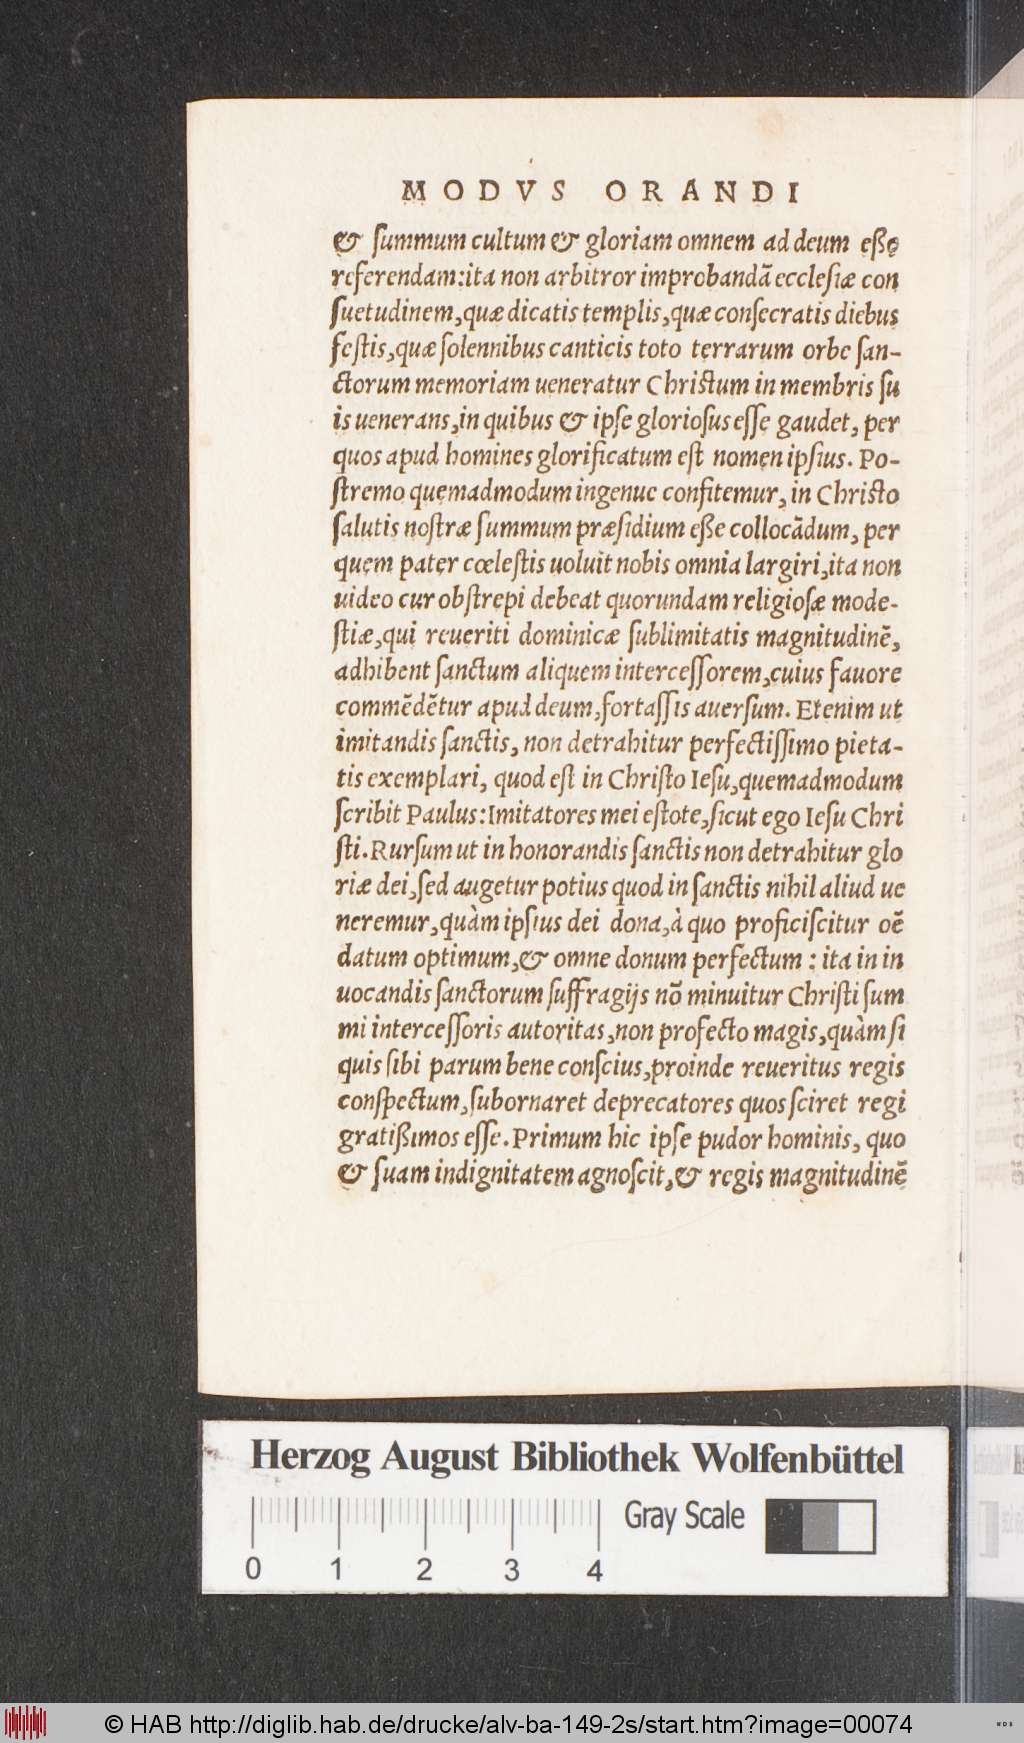 MODVS ORANDI
& summum cultum & gloriam omnem ad deum eße
referendam: ita non arbitror improbandā ecclesiæ con
suetudinem, quæ dicatis templis, quæ consecratis diebus
festis, quæ solennibus canticis toto terrarum orbe san-
ctorum memoriam ueneratur Christum in membris su
is uenerans, in quibus & ipse gloriosus esse gaudet, per
quos apud homines glorificatum est nomen ipsius. Po-
stremo quemadmodum ingenue confitemur, in Christo
salutis nostræ summum præsidium eße collocādum, per
quem pater cœlestis uoluit nobis omnia largiri, ita non
uideo cur obstrepi debeat quorundam religiosæ mode-
stiæ, qui reueriti dominicæ sublimitatis magnitudinē,
adhibent sanctum aliquem intercessorem, cuius fauore
commēdētur apud deum, fortassis auersum. Etenim ut
imitandis sanctis, non detrahitur perfectissimo pieta-
tis exemplari, quod est in Christo Iesu, quemadmodum
scribit Paulus: Imitatores mei estote, sicut ego Iesu Chri
sti. Rursum ut in honorandis sanctis non detrahitur glo
riæ dei, sed augetur potius quod in sanctis nihil aliud ue
neremur, quàm ipsius dei dona, à quo proficiscitur oē
datum optimum, & omne donum perfectum : ita in in
uocandis sanctorum suffragijs nō minuitur Christi sum
mi intercessoris autoritas, non profecto magis, quàm si
quis sibi parum bene conscius, proinde reueritus regis
conspectum, subornaret deprecatores quos sciret regi
gratißimos esse. Primum hic ipse pudor hominis, quo
& suam indignitatem agnoscit, & regis magnitudinē
Herzog August Bibliothek Wolfenbüttel
Gray Scale
0 1 2 3 4
© HAB http://diglib.hab.de/drucke/alv-ba-149-2s/start.htm?image=00074